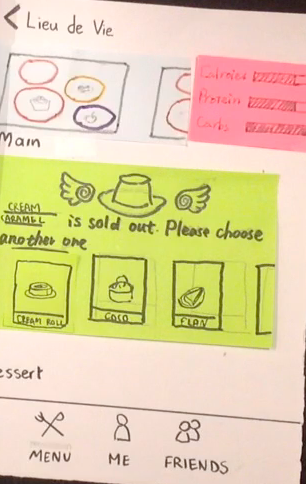 Lieu de Vie
Calories
Protein
Carbs
Main
CREAM
CARAMEL is sold out. Please choose
another one
CREAM ROLL
COCO
FLAN
essert
MENU
ME
FRIENDS